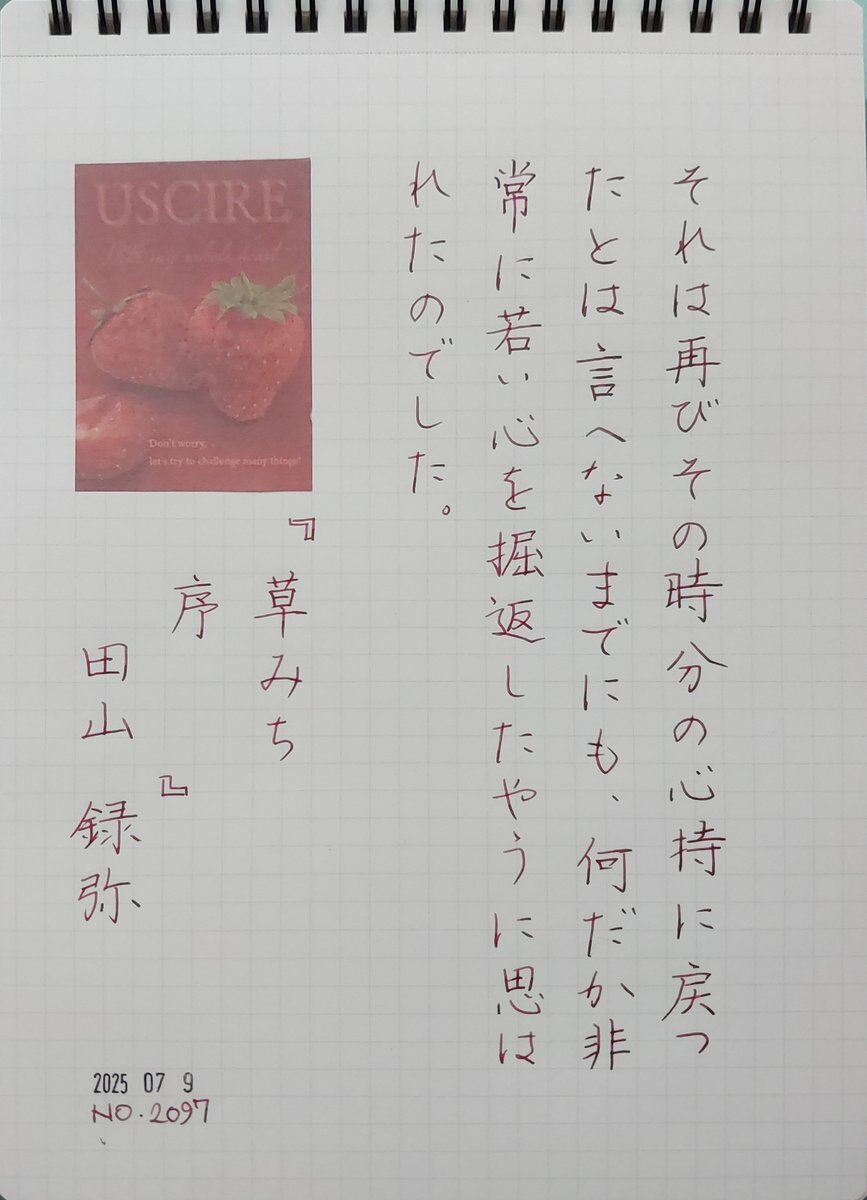 それは再びその時分の心持に戻つ
たとは言へないまでにも、何だか非
常に若い心を掘返したやうに思は
れたのでした。
『草みち
序』
田山 録弥
USCIRE
Don't worry,
let's try to challenge many things!
2025 07 9
NO.2097